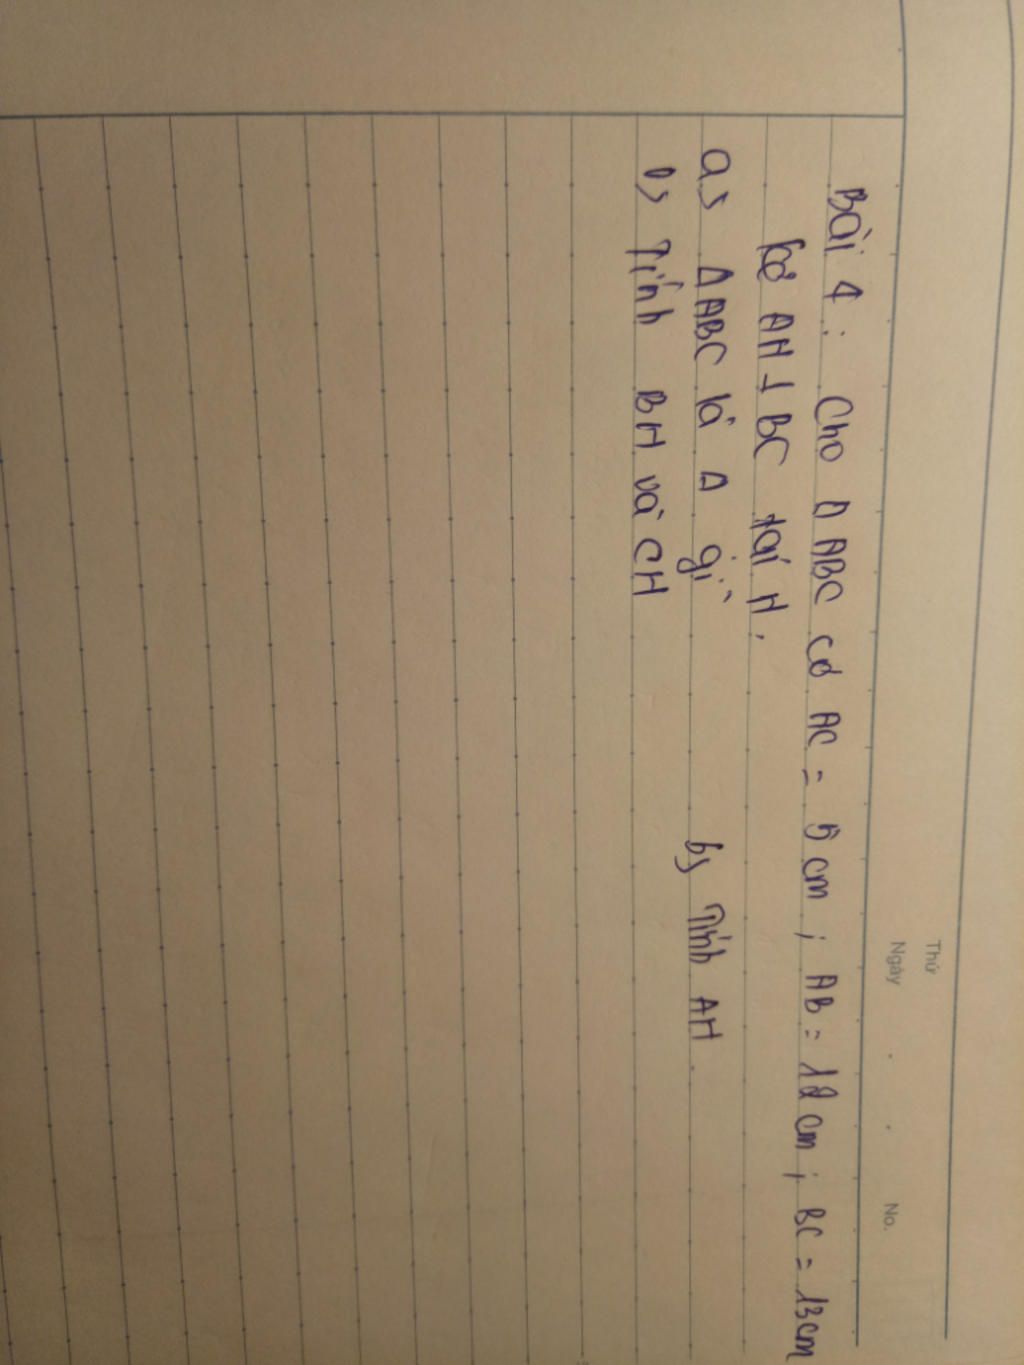 Thứ
Ngày . . No.
Bài 4 : Cho Δ ABC có AC = 5 cm ; AB = 12 cm ; BC = 13 cm
kẻ AH ⊥ BC tại H.
a) Δ ABC là Δ gì b) Tính AH.
c) Tính BH và CH